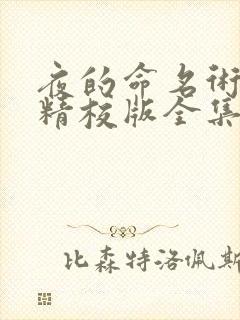 夜的命名術
精校版全集
比森特洛佩斯